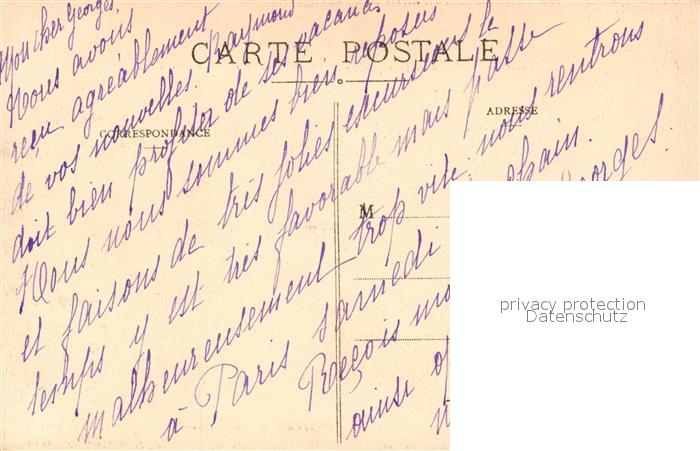 CARTE POSTALE
CORRESPONDANCE
ADRESSE
M
Mon cher Georges,
Nous avons
reçu agréablement
de vos nouvelles. Raymond
doit bien profiter de ses vacances
Nous nous sommes bien reposés
et faisons de très jolies excursions le
temps y est très favorable mais passe
malheureusement trop vite. nous rentrons
à Paris samedi
Reçois mo
Georges.
ainsi
privacy protection
Datenschutz